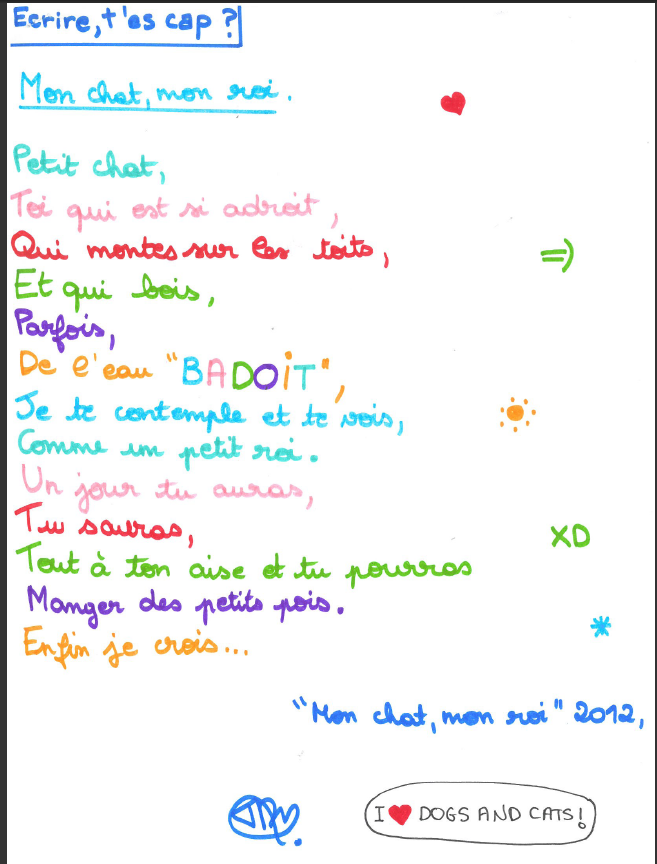 Ecrire, t'es cap ?
Mon chat, mon roi.
Petit chat,
Toi qui est si adroit,
Qui montes sur les toits,
Et qui bois,
Parfois,
De l'eau "BADOIT",
Je te contemple et te vois,
Comme un petit roi.
Un jour tu auras,
Tu sauras,
Tout à ton aise et tu pourras
Manger des petits pois.
Enfin je crois...
=)
XD
"Mon chat, mon roi" 2012,
I ♥ DOGS AND CATS!